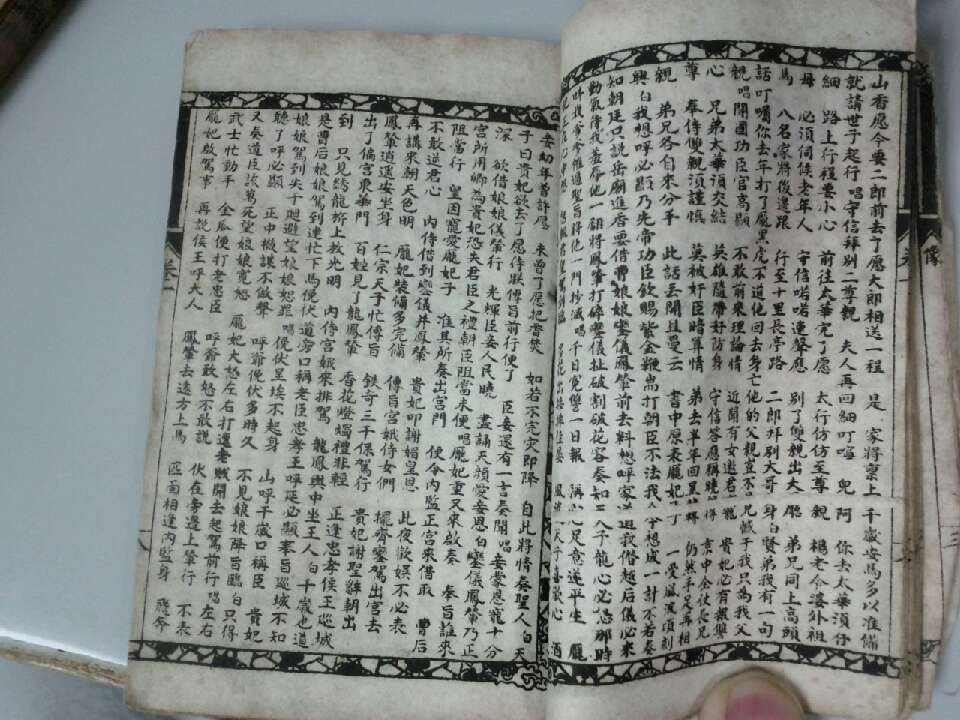 山香愿今要二郎前去了愿大郎相送一程 是 家將禀上千歲安馬多以准備
就請世子起行 唱守信拜別二尊親 夫人再回細叮嚀 兒 阿 你去太華須仔
細 路上行程要小心 前往太華完了愿 太行仿仿至尊 親 楊老令婆外祖
母 必須伺候老年人 守信喏喏連聲應 別了雙親出大 廳 弟兄同上高頭
馬 八名家將後邊跟 行至十里長亭路 二郎拜別大哥 身 白賢弟我有一句
話叮嚀你去年打了龐黑虎不道他回去身亡他的父親豈不 於我只為我父
親唱開國功臣官高顯 不敢前來理論情 近聞有女進君 貴妃必有報興
心 兄弟太華須交結 英雄隨帶好防身 守信答應稱 京中全仗長兄
尊 奉侍雙親須謹慎 莫被奸臣暗算情 弟去半年回里 仍然手足再相
親 弟兄各自來分手 此話丟開且慢云 書中原表龐妃 一受風流頃刻
興白我想呼必顯乃先帝功臣欽賜紫金鞭耑打朝臣不法我 今想成一計不若奏
知朝廷只說岳廟進香要借曹娘娘鑾儀鳳輦前去料想呼家 道我僭越后儀必來
勸氣待我羞辱他一頓將鳳輦打碎鑾儀扯破割破花容奏知 八子龍心必怒那時
過聖旨將他一門抄滅唱千日寃讐一日報 稱心足意遂平生 龐
妾幼年昔許愿 未曾了愿把香焚 如若不完災即降 自此將情奏聖人 白天
子曰貴妃欲去了愿待朕傳旨前行便了 臣妾還有一言奏聞唱 妾蒙恩寵十分
深 欲借娘娘儀輦行 光輝臣妾人民曉 盡誦天顏愛妾恩白鑾儀鳳輦乃正
宮所用卿為貴妃恐失君臣之禮朝臣阻當未便唱龐妃重又來啟奏 奉旨誰來
阻當行 皇因寵愛龐妃子 准其所奏出宮門 便令內監正宮來借取 曹后
不敢逆君心 內侍借到鑾儀并鳳輦 貴妃叩謝媚皇恩 此夜歡娛不必表
再講來朝天色明 龐妃裝傾多完備 傳旨宮娥侍女們 擺齊鑾駕出宮去
鳳輦逍遙安坐身 仁宗天子忙傳旨 鉄奇三千保駕行 貴妃謝聖辭朝出
出了偏宮東華門 百姓見了龍鳳輦 香花燈燭禮非輕 正逢忠孝侯王巡城
到 只見綉龍旂上救光明 內侍宮娥來排駕 龍鳳輿中坐王人白千歲也道
是曹后娘娘駕到連忙下馬俛伏道旁口稱老臣忠孝王呼延必顯奉旨巡城不知
娘娘駕到失于迴避望娘娘恕罪唱俛伏塵埃不起身 山呼千歲口稱臣 貴妃
聽了呼必顯 正中機謀不做聲 呼爺俛伏多時久 不見娘娘降旨臨白只得
又奏道臣該萬死望娘娘寬恕 龐妃大怒左右打這老賊開去起駕前行唱左右
武士忙動手 金瓜便打老忠臣 呼爺敢怒不敢說 伏在旁邊上輦行 不表
龐妃啟駕事 再說侯王呼大人 鳳輦去遠方上馬 匹面相逢內監身 飛奔
卷一
八